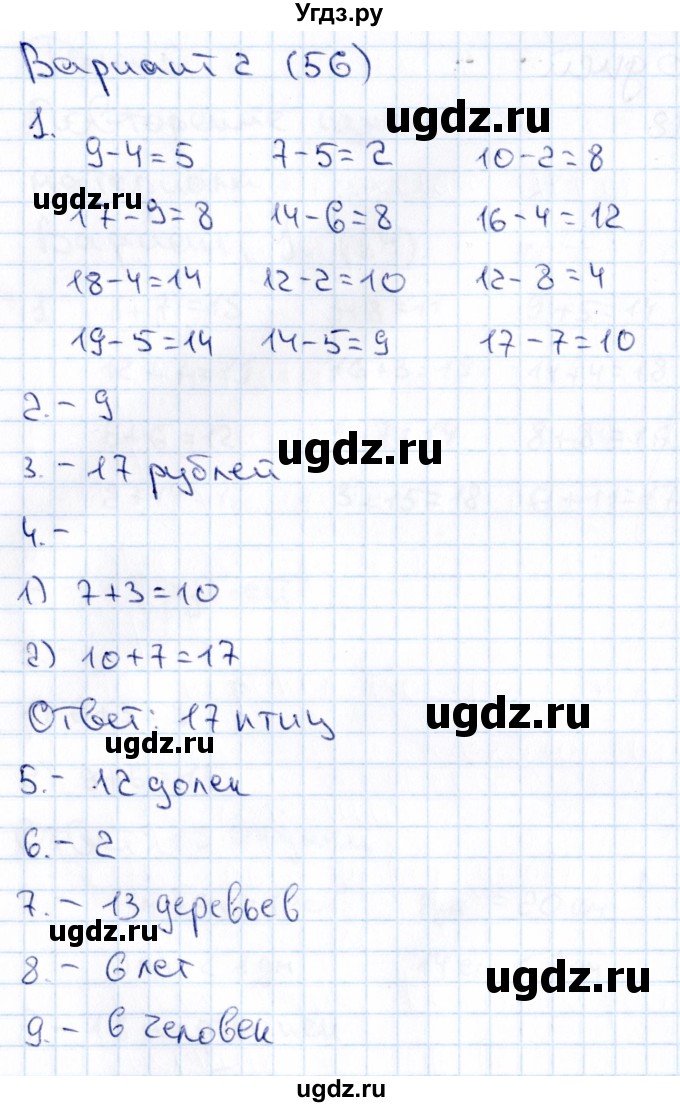 Угдз.ру
Вариант 2 (56)
ugdz.ru
1.
9-4=5 7-5=2 10-2=8
ugdz.ru
17-9=8 14-6=8 16-4=12
18-4=14 12-2=10 12-8=4
19-5=14 14-5=9 17-7=10
2.- 9
ugdz.ru
3.- 17 рублей
4.-
1) 7+3=10
2) 10+7=17
Ответ: 17 птиц
ugdz.ru
ugdz.ru
5.- 12 долек
6.- 2
7.- 13 деревьев
ugdz.ru
8.- 6 лет
ugdz.ru
9.- 6 человек
ugdz.ru